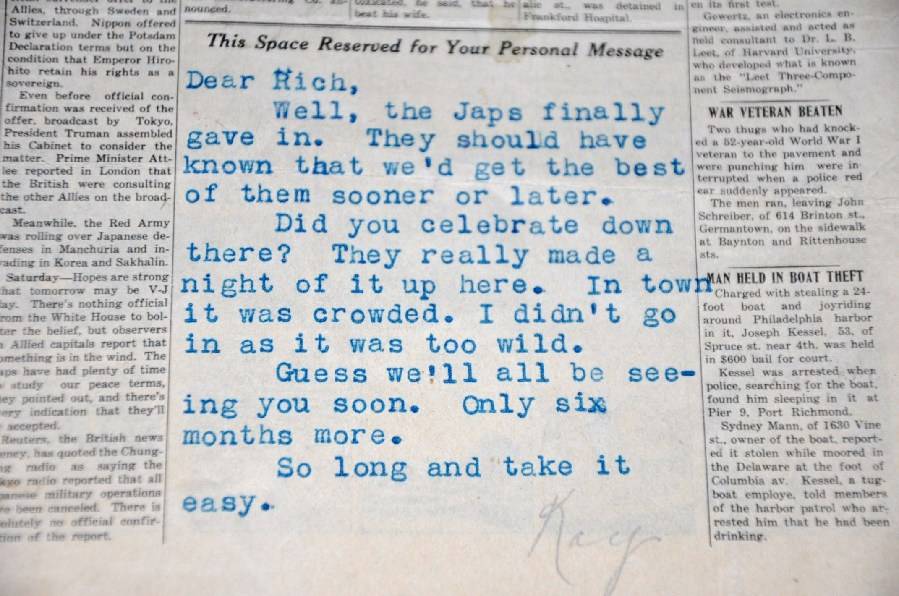 Allies, through Sweden and
Switzerland. Nippon offered
to give up under the Potsdam
Declaration terms but on the
condition that Emperor Hiro-
hito retain his rights as a
sovereign.
Even before official con-
firmation was received of the
offer, broadcast by Tokyo,
President Truman assembled
his Cabinet to consider the
matter. Prime Minister Att-
lee reported in London that
the British were consulting
the other Allies on the broad-
cast.
Meanwhile, the Red Army
was rolling over Japanese de-
fenses in Manchuria and in-
vading in Korea and Sakhalin.
Saturday—Hopes are strong
that tomorrow may be V-J
day. There's nothing official
from the White House to bol-
ster the belief, but observers
in Allied capitals report that
something is in the wind. The
aps have had plenty of time
study our peace terms,
ey pointed out, and there's
ery indication that they'll
accepted.
Reuters, the British news
ency, has quoted the Chung-
ng radio as saying the
kyo radio reported that all
panese military operations
been canceled. There is
olutely no official confir-
tion of the report.
nounced.
beat his wife.
alic st., was detained in
Frankford Hospital.
This Space Reserved for Your Personal Message
Dear Rich,
Well, the Japs finally
gave in. They should have
known that we'd get the best
of them sooner or later.
Did you celebrate down
there? They really made a
night of it up here. In town
it was crowded. I didn't go
in as it was too wild.
Guess we'll all be see-
ing you soon. Only six
months more.
So long and take it
easy.
Kay
en its first test.
Gewertz, an electronics en-
gineer, assisted and acted as
field consultant to Dr. L. B.
Leet, of Harvard University,
who developed what is known
as the "Leet Three-Compo-
nent Seismograph."
WAR VETERAN BEATEN
Two thugs who had knock-
ed a 52-year-old World War I
veteran to the pavement and
were punching him were in-
terrupted when a police red
car suddenly appeared.
The men ran, leaving John
Schreiber, of 614 Brinton st.,
Germantown, on the sidewalk
at Baynton and Rittenhouse
sts.
MAN HELD IN BOAT THEFT
Charged with stealing a 24-
foot boat and joyriding
around Philadelphia harbor
in it, Joseph Kessel, 53, of
Spruce st. near 4th, was held
in $600 bail for court.
Kessel was arrested when
police, searching for the boat,
found him sleeping in it at
Pier 9, Port Richmond.
Sydney Mann, of 1630 Vine
st., owner of the boat, report-
ed it stolen while moored in
the Delaware at the foot of
Columbia av. Kessel, a tug-
boat employe, told members
of the harbor patrol who ar-
rested him that he had been
drinking.